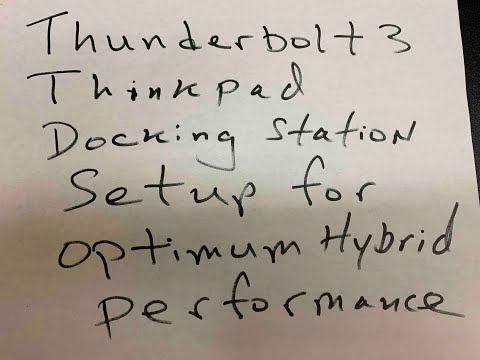 Thunderbolt 3
Thinkpad
Docking Station
Setup for
Optimum Hybrid
Performance